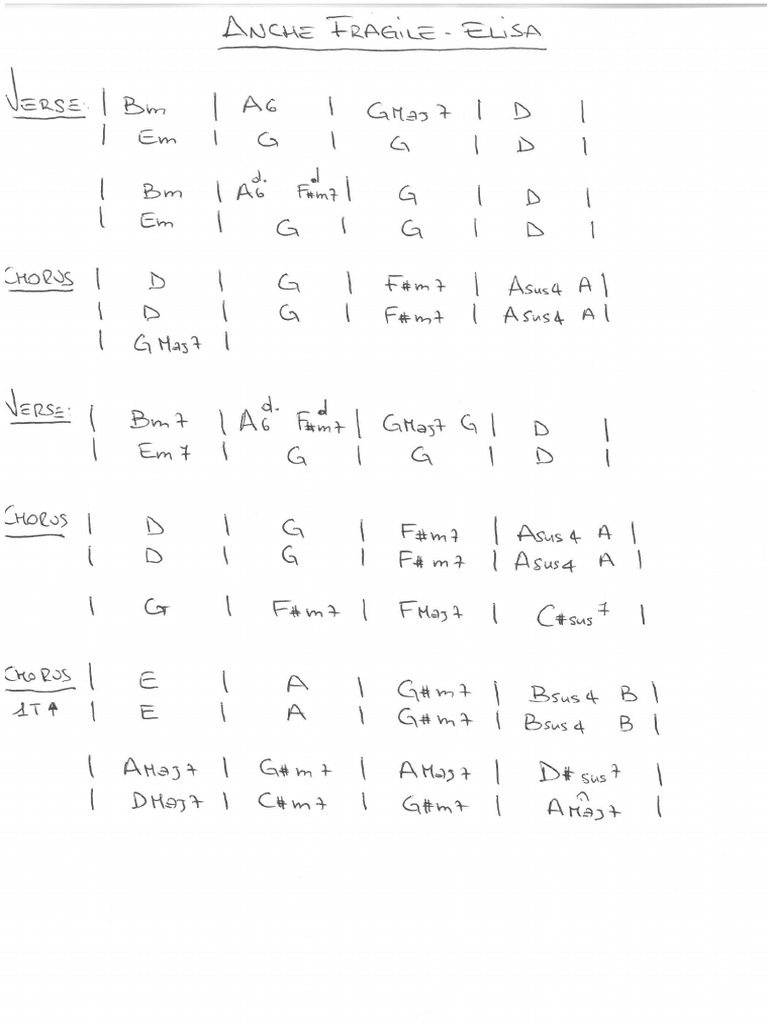 ANCHE FRAGILE - ELISA
VERSE: | Bm | A6 | GMaj7 | D |
| Em | G | G | D |
| Bm | A6 d. F#m7 d | G | D |
| Em | G | G | D |
CHORUS | D | G | F#m7 | Asus4 A |
| D | G | F#m7 | Asus4 A |
| GMaj7 |
VERSE: | Bm7 | A6 d. F#m7 d | GMaj7 G | D |
| Em7 | G | G | D |
CHORUS | D | G | F#m7 | Asus4 A |
| D | G | F#m7 | Asus4 A |
| G | F#m7 | FMaj7 | C#sus7 |
CHORUS | E | A | G#m7 | Bsus4 B |
1T↑ | E | A | G#m7 | Bsus4 B |
| AMaj7 | G#m7 | AMaj7 | D#sus7 |
| DMaj7 | C#m7 | G#m7 | AMaj7 |